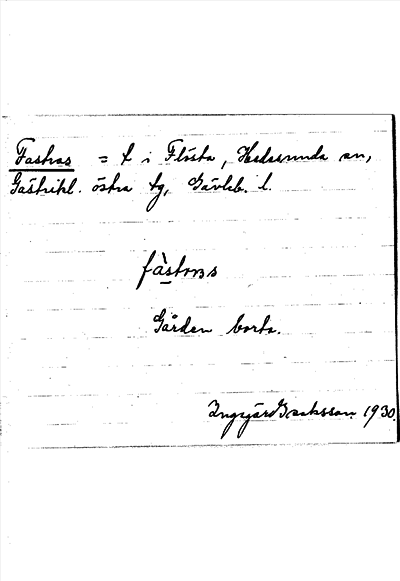 Fastras = t i Flösta, Hedesunda sn,
Gästrikl. östra tg, Gävleb. l.
fàstras
Gården borta.
Ingegärd Isaksson 1930.